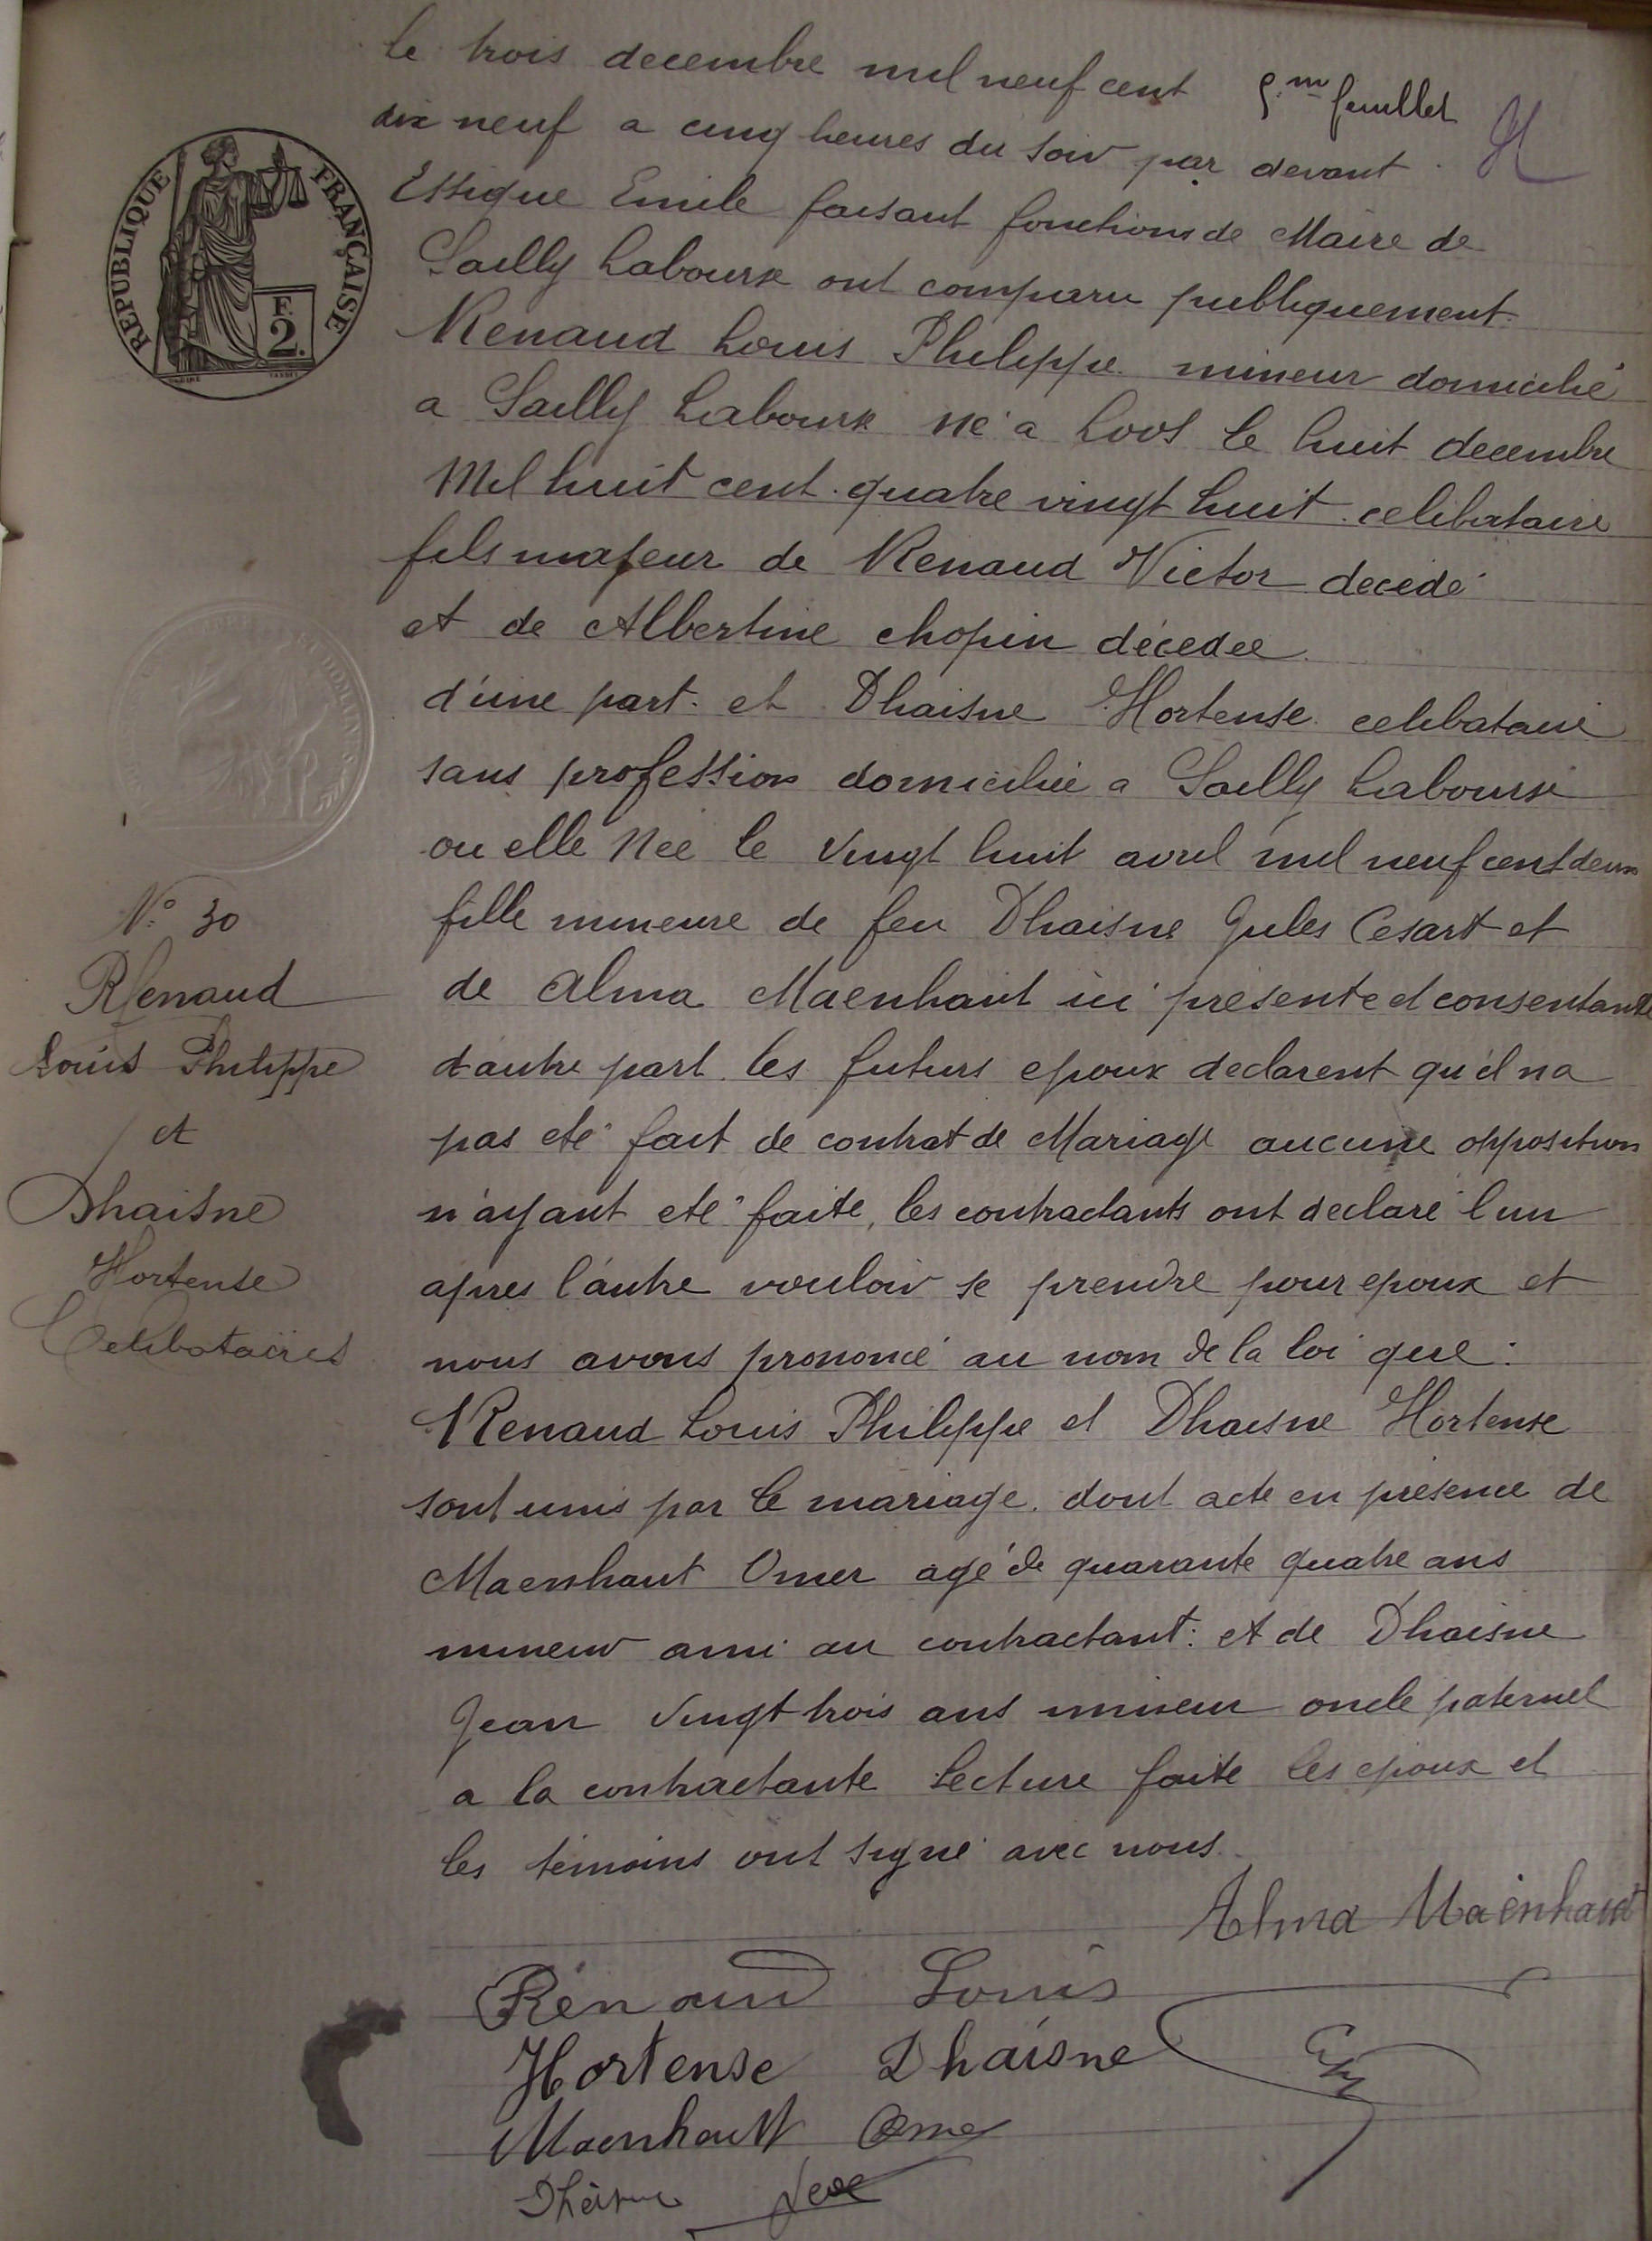 le trois decembre mil neuf cent
5.me feuillet
dix neuf a cinq heures du soir par devant
REPUBLIQUE FRANÇAISE
F. 2.
Essique Emile faisant fonctions de Maire de
Sailly Labourse ont comparu publiquement
Renaud Louis Philippe mineur domicilié
a Sailly Labourse né a Loos le huit decembre
Mil huit cent quatre vingt huit celibataire
fils majeur de Renaud Victor decedé
et de Albertine chopin décedée
d'une part. et Dhaisne Hortense celibataire
sans profession domiciliée a Sailly Labourse
ou elle née le vingt huit avril mil neuf cent deux
fille mineure de feu Dhaisne Jules Cesart et
de Alma Maenhaut ici présente et consentante
d'autre part. les futurs epoux declarent qu'il na
pas eté fait de contrat de Mariage aucune opposition
n'ayant eté faite, les contractants ont declaré l'un
apres l'autre vouloir se prendre pour epoux et
nous avons prononcé au nom de la loi que :
Renaud Louis Philippe et Dhaisne Hortense
sont unis par le mariage. dont acte en présence de
Maenhaut Omer agé de quarante quatre ans
mineur ami au contractant : et de Dhaisne
Jean vingt trois ans mineur oncle paternel
a la contractante Lecture faite les epoux et
les témoins ont signé avec nous.
N° 30
Renaud
Louis Philippe
et
Dhaisne
Hortense
Celibataires
Alma Maenhaut
Renaud Louis
Hortense Dhaisne
Maenhaut Omer